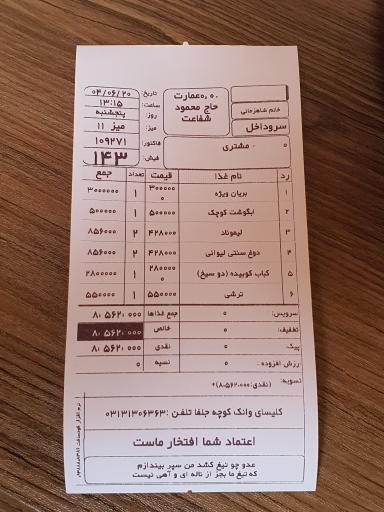 ۰۰،۰عمارت
حاج محمود
شفاعت
خانم شاهزمانی
سروداخل
تاریخ: ۰۴/۰۶/۲۰
ساعت: ۱۳:۱۵
روز: پنجشنبه
میز: میز ۱۱
فاکتور: ۱۰۹۲۷۱
فیش: ۱۴۳
۰ - مشتری
رد نام غذا قیمت تعداد جمع
۱ بریان ویژه ۳۰۰۰۰۰۰ ۱ ۳۰۰۰۰۰۰
۲ ابگوشت کوچک ۵۰۰۰۰۰ ۱ ۵۰۰۰۰۰
۳ لیموناد ۴۲۸۰۰۰ ۲ ۸۵۶۰۰۰
۴ دوغ سنتی لیوانی ۴۲۸۰۰۰ ۲ ۸۵۶۰۰۰
۵ کباب کوبیده (دو سیخ) ۲۸۰۰۰۰۰ ۱ ۲۸۰۰۰۰۰
۶ ترشی ۵۵۰۰۰۰ ۱ ۵۵۰۰۰۰
سرویس: ۰ جمع غذاها ۸،۵۶۲،۰۰۰
تخفیف: ۰ خالص ۸،۵۶۲،۰۰۰
پیک: ۰ نقدی ۸،۵۶۲،۰۰۰
ارزش افزوده: ۰ نسیه ۰
تسویه: (نقدی:۸،۵۶۲،۰۰۰)+
کلیسای وانک کوچه جلفا تلفن :۰۳۱۳۱۳۰۶۳۶۳
اعتماد شما افتخار ماست
عدو چو تیغ کشد من سپر بیندازم
که تیغ ما بجز از ناله ای و آهی نیست